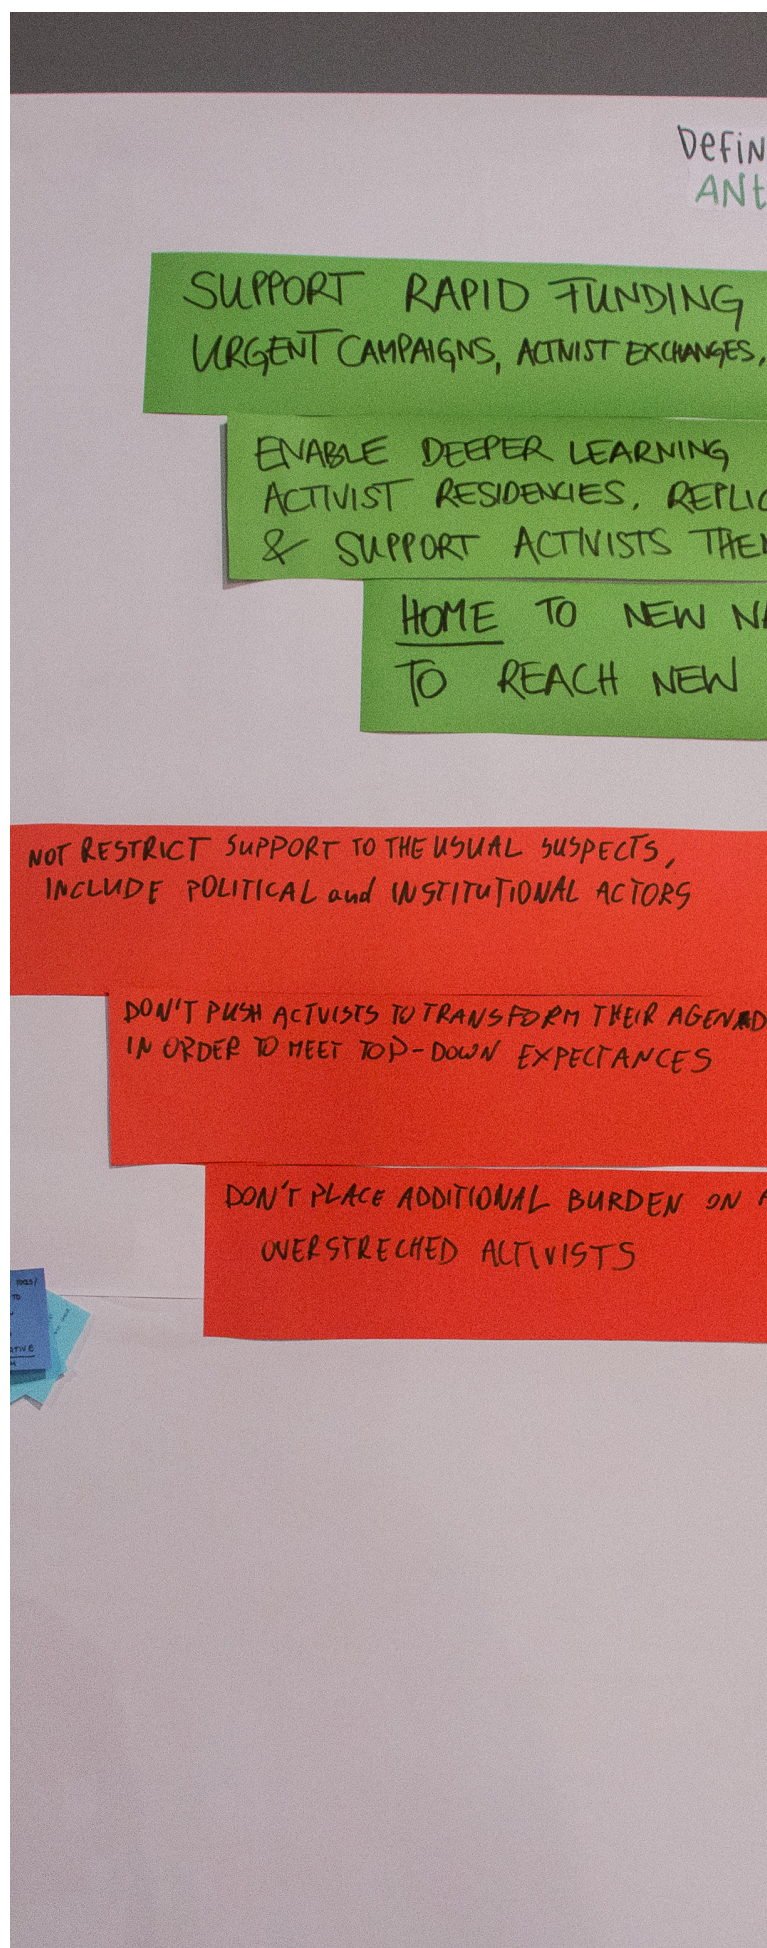 DEFIN
ANt
SUPPORT RAPID FUNDING
URGENT CAMPAIGNS, ACTIVIST EXCHANGES,
ENABLE DEEPER LEARNING
ACTIVIST RESIDENCIES, REPLIC
& SUPPORT ACTIVISTS THEM
HOME TO NEW NA
TO REACH NEW
NOT RESTRICT SUPPORT TO THE USUAL SUSPECTS,
INCLUDE POLITICAL and INSTITUTIONAL ACTORS
DON'T PUSH ACTVISTS TO TRANSFORM THEIR AGENAD
IN ORDER TO MEET TOP-DOWN EXPECTANCES
DON'T PLACE ADDITIONAL BURDEN ON
OVERSTRECHED ACTIVISTS
TOOLS/
TO
ATIVE